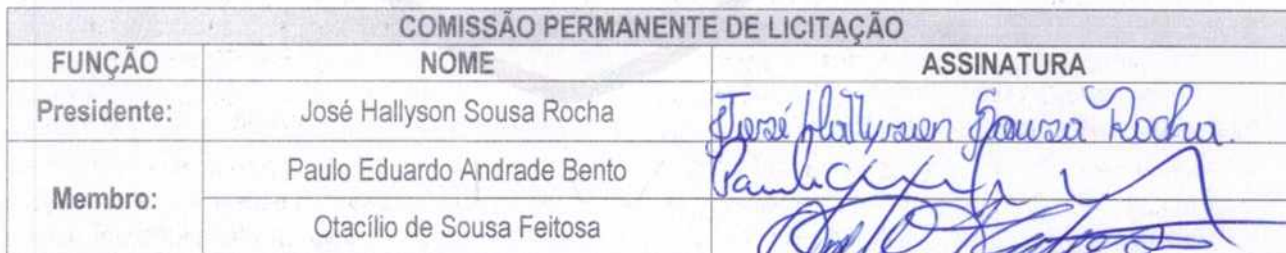 COMISSÃO PERMANENTE DE LICITAÇÃO
FUNÇÃO NOME ASSINATURA
Presidente: José Hallyson Sousa Rocha José Hallyson Sousa Rocha
Membro: Paulo Eduardo Andrade Bento
Otacílio de Sousa Feitosa